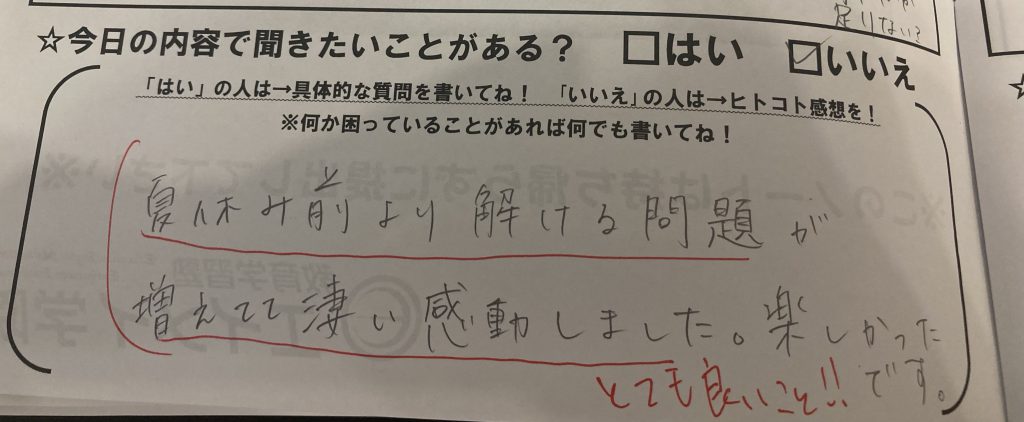 定りない?
☆今日の内容で聞きたいことがある? □はい ☑いいえ
「はい」の人は→具体的な質問を書いてね! 「いいえ」の人は→ヒトコト感想を!
※何か困っていることがあれば何でも書いてね!
夏休み前より解ける問題が
増えてて凄い感動しました。楽しかった
です。
とても良いこと!!
※このノートは持ち帰らずに提出して下さい※
教育学習塾